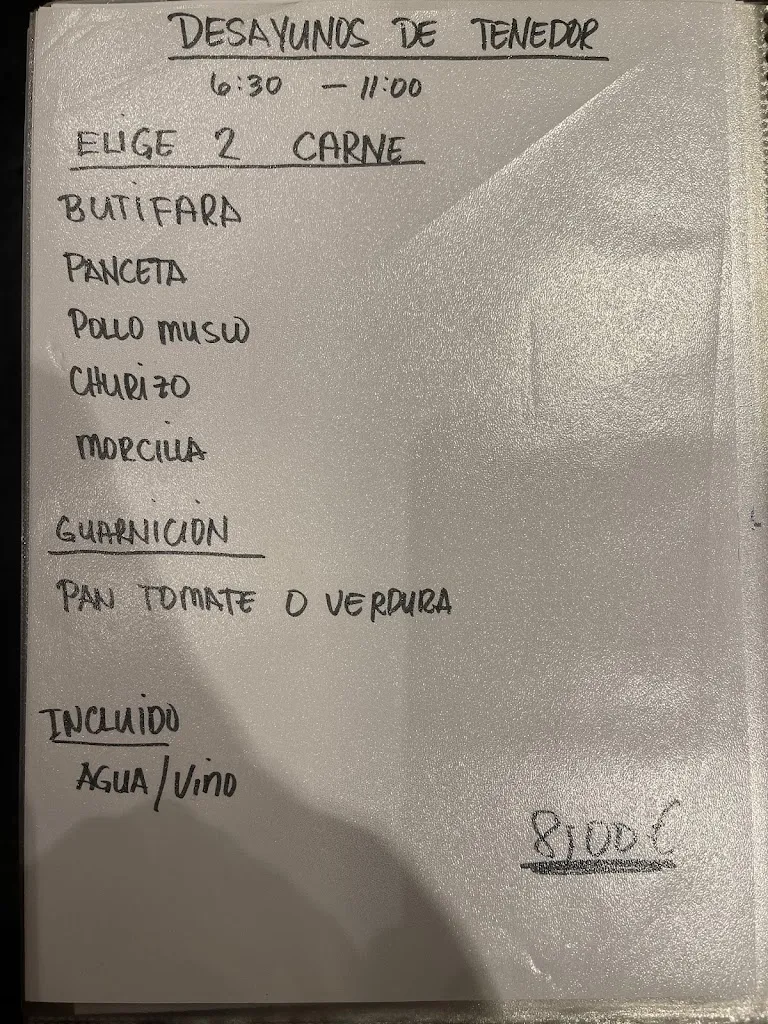 DESAYUNOS DE TENEDOR
6:30 - 11:00
ELIGE 2 CARNE
BUTIFARA
PANCETA
POLLO MUSLO
CHURIZO
MORCILLA
GUARNICION
PAN TOMATE O VERDURA
INCLUIDO
AGUA/Vino
8,00€